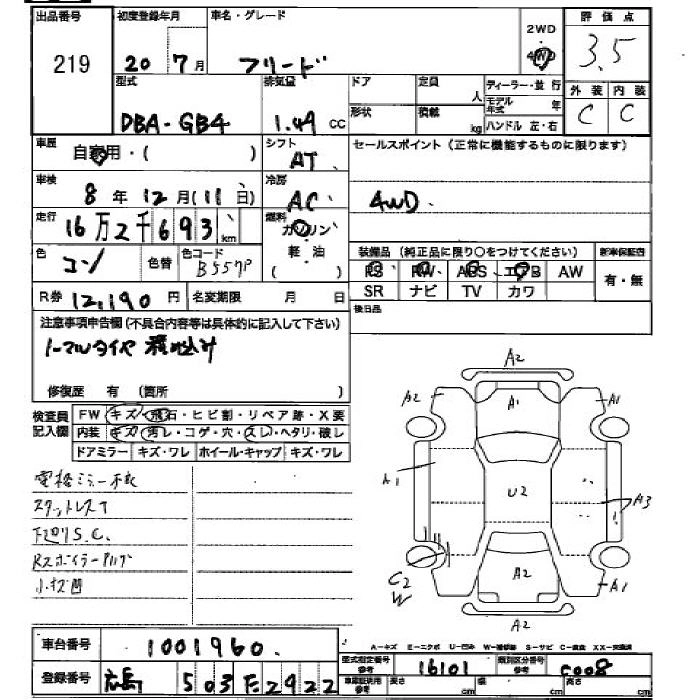 出品番号 初度登録年月 車名・グレード 2WD 評価点
219 20 7月 フリード 4WD 3.5
型式 排気量 ドア 定員 人 ディーラー・並行 外装 内装
DBA-GB4 1.49 CC 形状 積載 kg モデル年式 年 C C
ハンドル 左・右
車歴 自家用・( ) シフト AT セールスポイント(正常に機能するものに限ります)
車検 8年12月(11日) 冷房 AC 4WD
走行 16万2千693km 燃料 ガソリン
色 コン 色替 色コード B557P 軽・油 ( )
装備品(純正品に限り○をつけてください) 新車保証書
PS PW ABS エアB AW 有・無
SR ナビ TV カワ
R券 12,190円 名変期限 月 日 後日品
注意事項申告欄(不具合内容等は具体的に記入して下さい)
ノーマルタイヤ 積み込み
修復歴 有(箇所 )
検査員記入欄 FW キズ・飛石・ヒビ割・リペア跡・X要
内装 キズ・汚レ・コゲ・穴・スレ・ヘタリ・破レ
ドアミラー キズ・ワレ ホイール・キャップ キズ・ワレ
スタットレス
下廻りS.C.
小キズ凹
A2
A2 A1 A1
A1 U2 A3
C2 W A2 A1
A2
A-キズ E-エクボ U-凹み W-補修跡 S-サビ C-腐食 XX-交換済
車台番号 1001960
型式指定番号 参考 16101 類別区分番号 参考 C008
登録番号 広島 503 た 2922
車庫証明用 参考 長さ cm 幅 cm 高さ cm